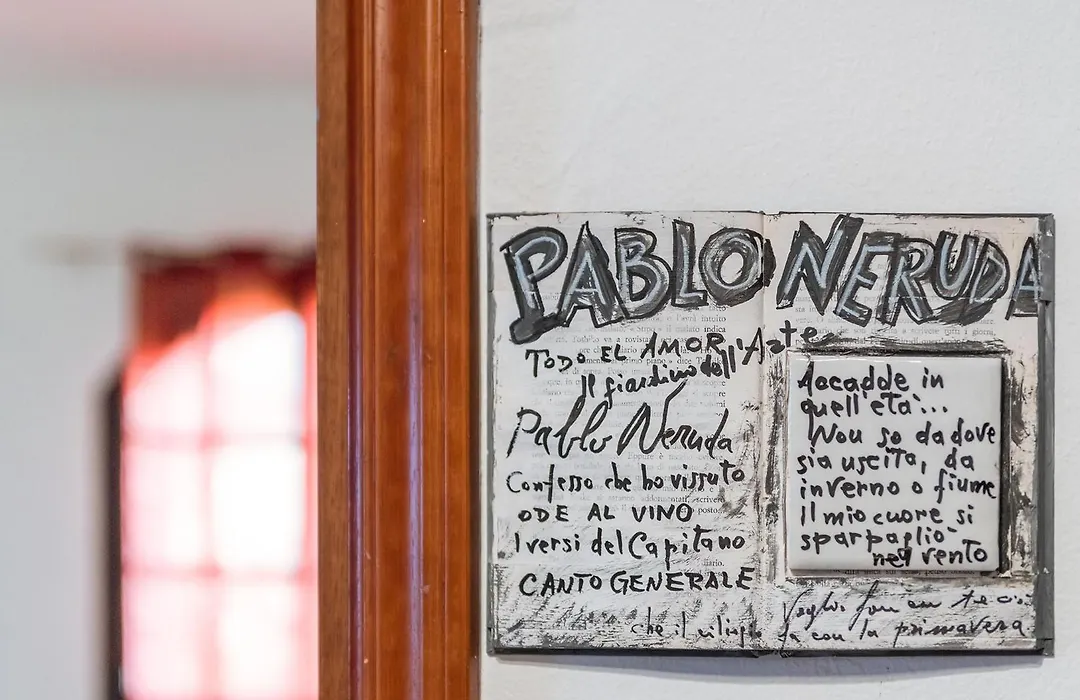 PABLO NERUDA
TODO EL AMOR
Il giardino dell'Arte
Pablo Neruda
Confesso che ho vissuto
ODE AL VINO
I versi del Capitano
CANTO GENERALE
Accadde in
quell'età...
Non so da dove
sia uscita, da
inverno o fiume
Il mio cuore si
sparpagliò
nel vento
Voglio fare con te ciò
che il fa con la primavera